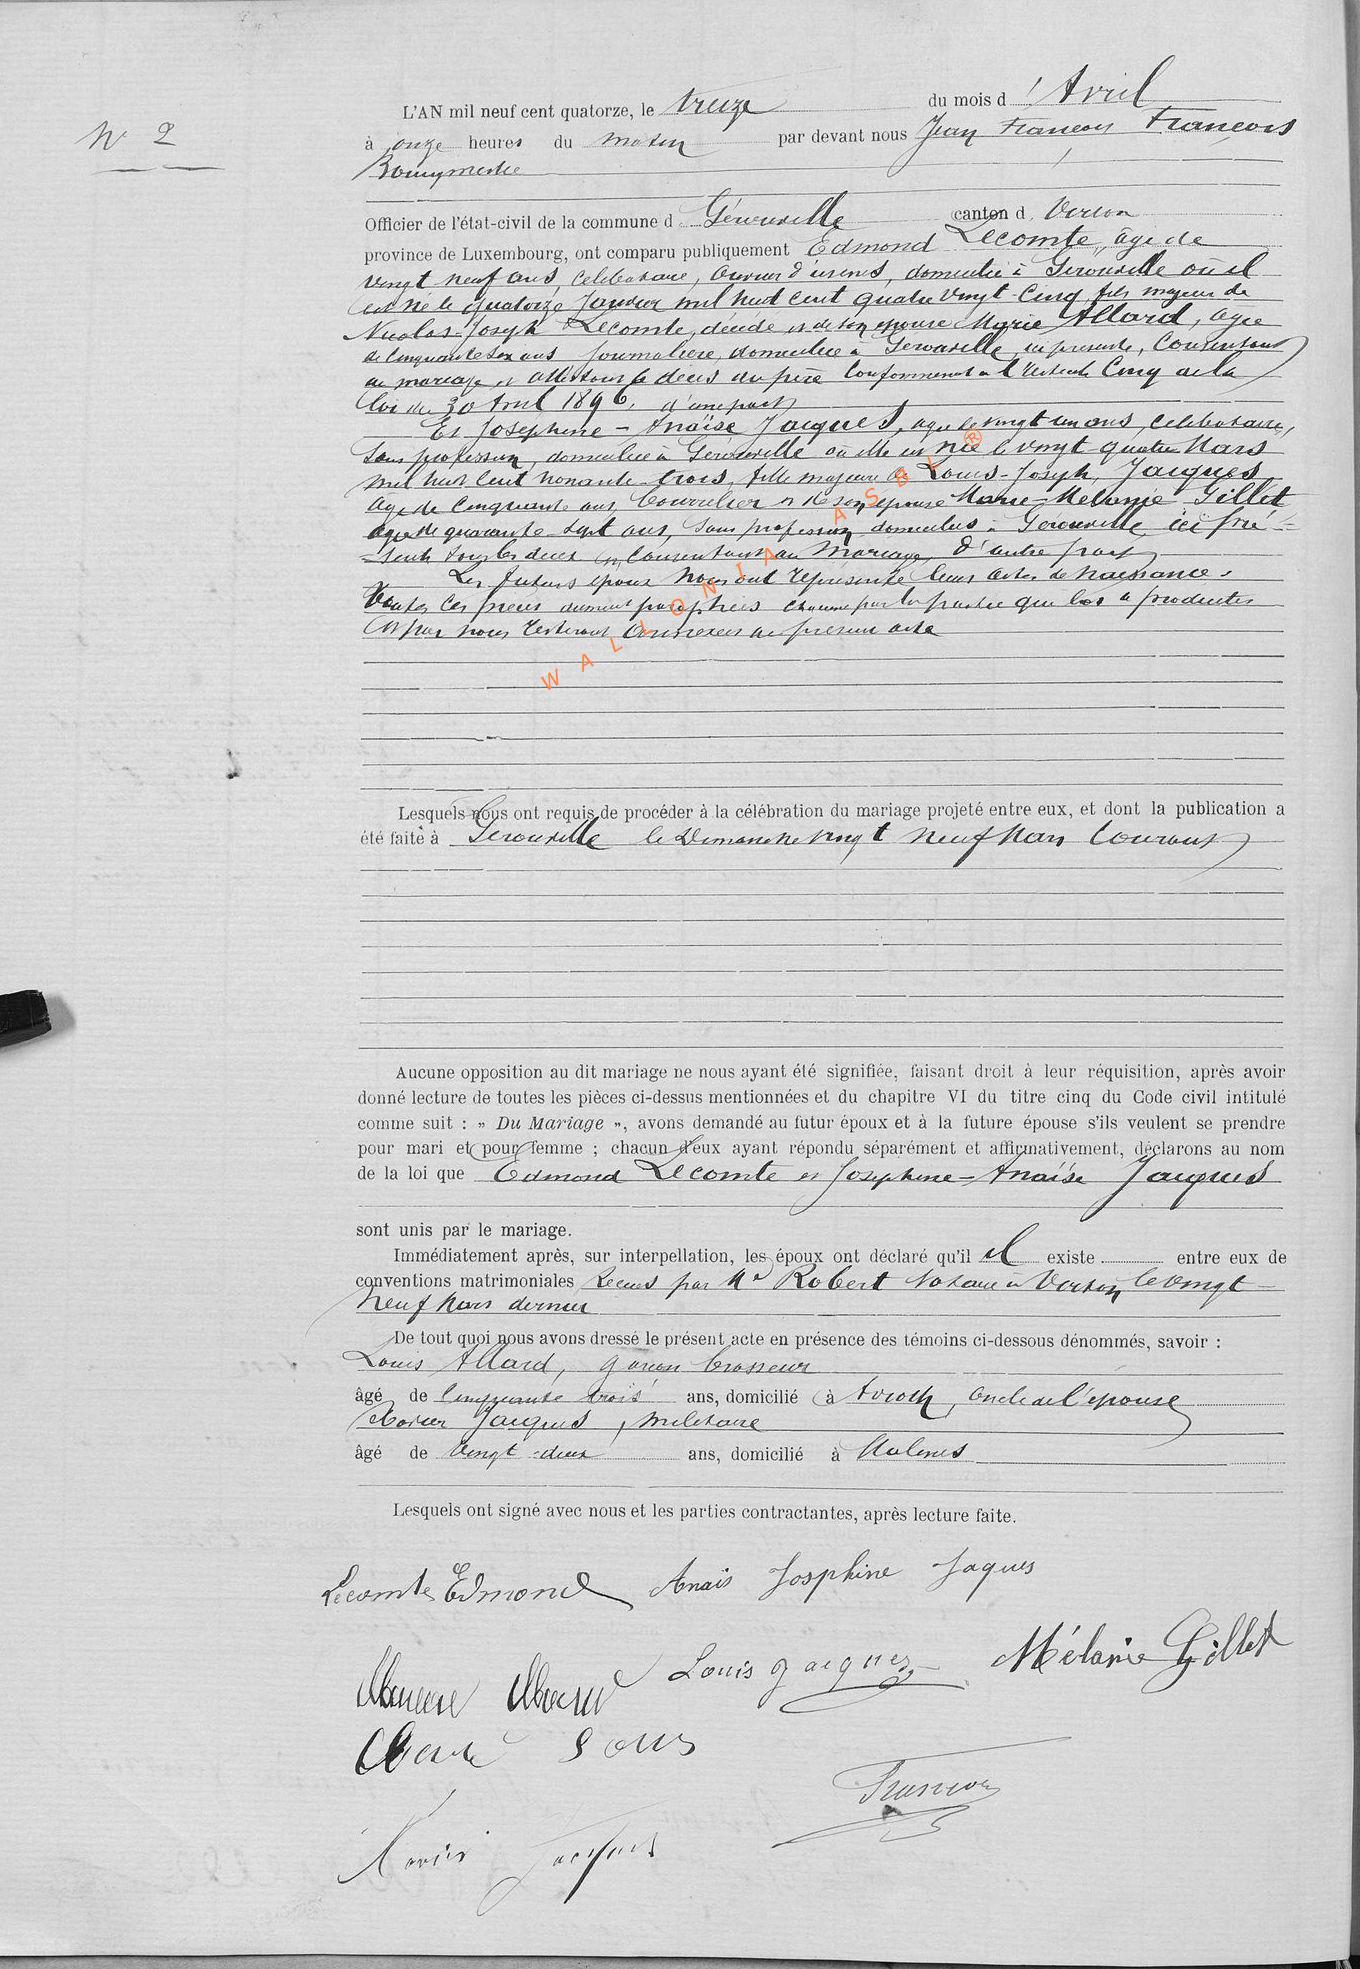 N° 2
L'AN mil neuf cent quatorze, le treize du mois d'Avril
à onze heures du matin par devant nous Jean François François
Bourgmestre
Officier de l'état-civil de la commune d Gérouville canton d Virton
province de Luxembourg, ont comparu publiquement Edmond Lecomte, âgé de
vingt neuf ans, célibataire, ouvrier d'usines, domicilié à Gérouville où il
est né le quatorze Janvier mil huit cent quatre vingt-cinq, fils majeur de
Nicolas-Joseph Lecomte, décédé et de son épouse Marie Allard, âgée
de cinquante six ans journalière, domiciliée à Gérouville, ici présente, consentant
au mariage et attestant le décès du père conformément à l'article cinq de la
loi du 30 Avril 1896, d'une part
Et Joséphine-Anaïse Jacques, agée de vingt un ans, célibataire,
sans profession, domiciliée à Gérouville où elle est née le vingt quatre Mars
mil huit cent nonante-trois, fille majeure de Louis-Joseph Jacques
âgé de cinquante ans, et de son épouse Marie-Mélanie Gillet
agée de quarante-sept ans, sans profession domiciliés à Gérouville ici pré-
-sents tous les deux et consentant au mariage d'autre part
Les futurs époux nous ont représenté leurs actes de naissance.
Toutes ces pièces dument paraphées chacune par la partie que les a produites
et par nous resteront annexées au présent acte
WALLONIA ASBL ®
Lesquels nous ont requis de procéder à la célébration du mariage projeté entre eux, et dont la publication a
été faite à Gérouville le Dimanche vingt neuf Mars courant
Aucune opposition au dit mariage ne nous ayant été signifiée, faisant droit à leur réquisition, après avoir
donné lecture de toutes les pièces ci-dessus mentionnées et du chapitre VI du titre cinq du Code civil intitulé
comme suit : „ Du Mariage ", avons demandé au futur époux et à la future épouse s'ils veulent se prendre
pour mari et pour femme ; chacun d'eux ayant répondu séparément et affirmativement, déclarons au nom
de la loi que Edmond Lecomte et Joséphine-Anaïse Jacques
sont unis par le mariage.
Immédiatement après, sur interpellation, les époux ont déclaré qu'il il existe entre eux de
conventions matrimoniales reçues par Me Robert Notaire à Virton le vingt
neuf Mars dernier
De tout quoi nous avons dressé le présent acte en présence des témoins ci-dessous dénommés, savoir :
Louis Allard, garçon brasseur
âgé de cinquante trois ans, domicilié à Avioth, oncle de l'épouse
Xavier Jacques, militaire
âgé de vingt-deux ans, domicilié à Malines
Lesquels ont signé avec nous et les parties contractantes, après lecture faite.
Lecomte Edmond Anais Josphine Jaques
Louis Jacques Mélanie Gillet
François
Xavier Jacques